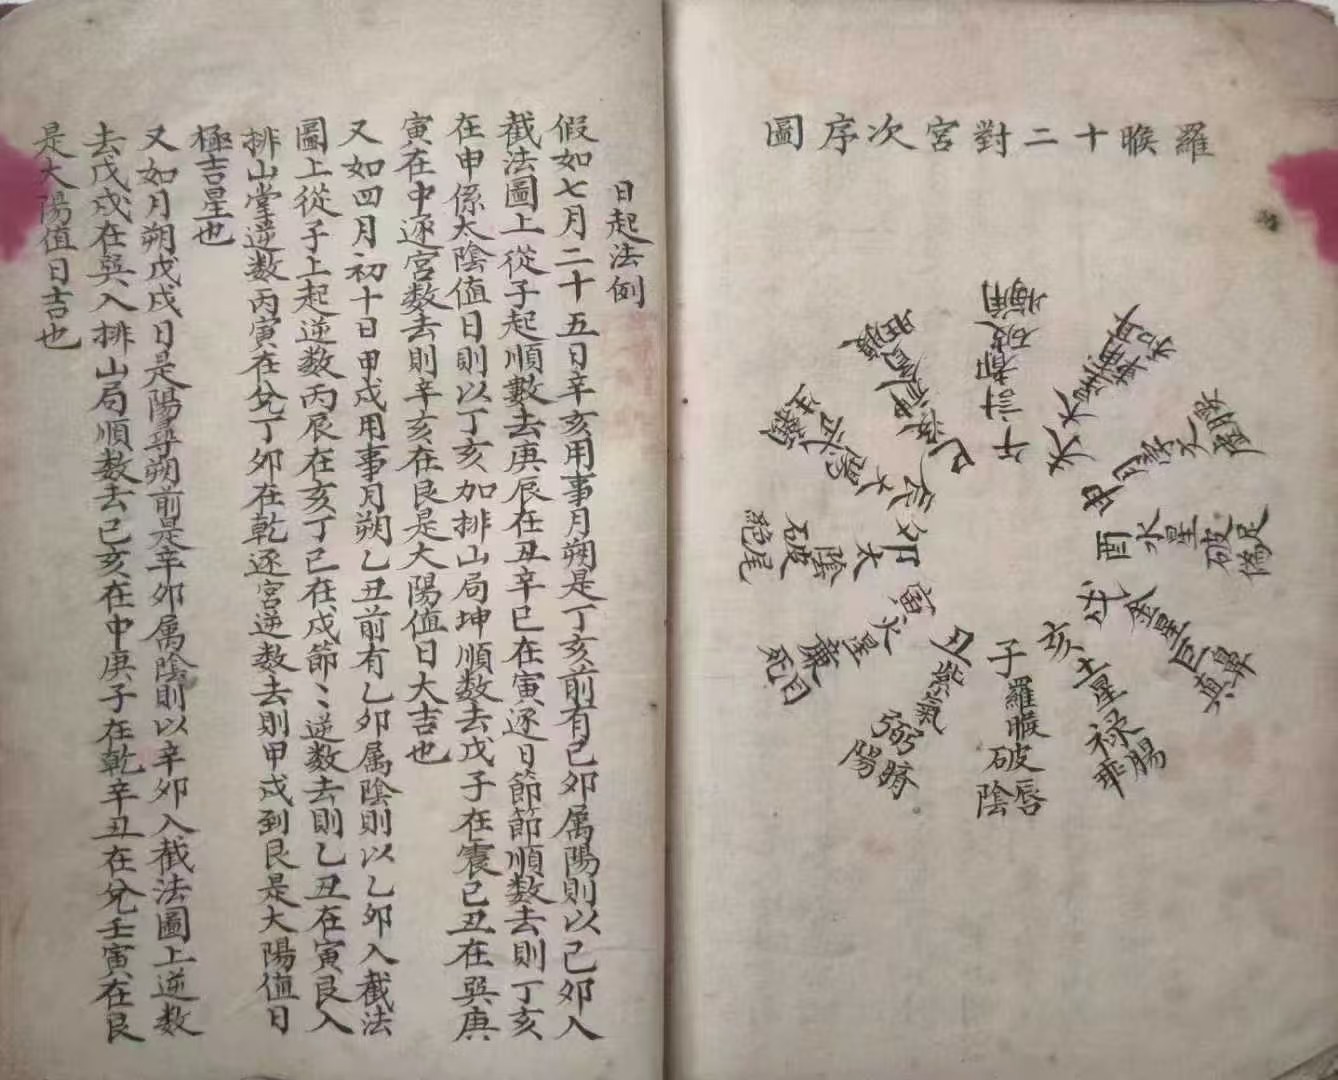 羅睺十二對宮次序圖
子羅睺破唇陰
丑紫氣弼臍陽
寅火星廉
卯太陰破絕尾
辰太陽武
巳
午計都破
未太
申月孛
酉水星破
戌金星巨鼻
亥土星禄腸
日起法例
假如七月二十五日辛亥用事月朔是丁亥前有己卯属陽則以己卯入
截法圖上從子起順數去庚辰在丑辛巳在寅逐日節節順数去則丁亥
在申係太陰值日則以丁亥加排山局坤順数去戊子在震己丑在巽庚
寅在中逐宮数去則辛亥在艮是大陽值日大吉也
又如四月初十日甲戌用事月朔乙丑前有乙卯属陰則以乙卯入截法
圖上從子上起逆数丙辰在亥丁巳在戍節〻逆数去則乙丑在寅艮入
排山堂逆数丙寅在兌丁卯在乾逐宮逆数去則甲戌到艮是大陽值日
極吉星也
又如月朔戊戌日是陽年朔前是辛卯属陰則以辛卯入截法圖上逆数
去戊戌在巽入排山局順数去己亥在中庚子在乾辛丑在兌壬寅在艮
是大陽值日吉也